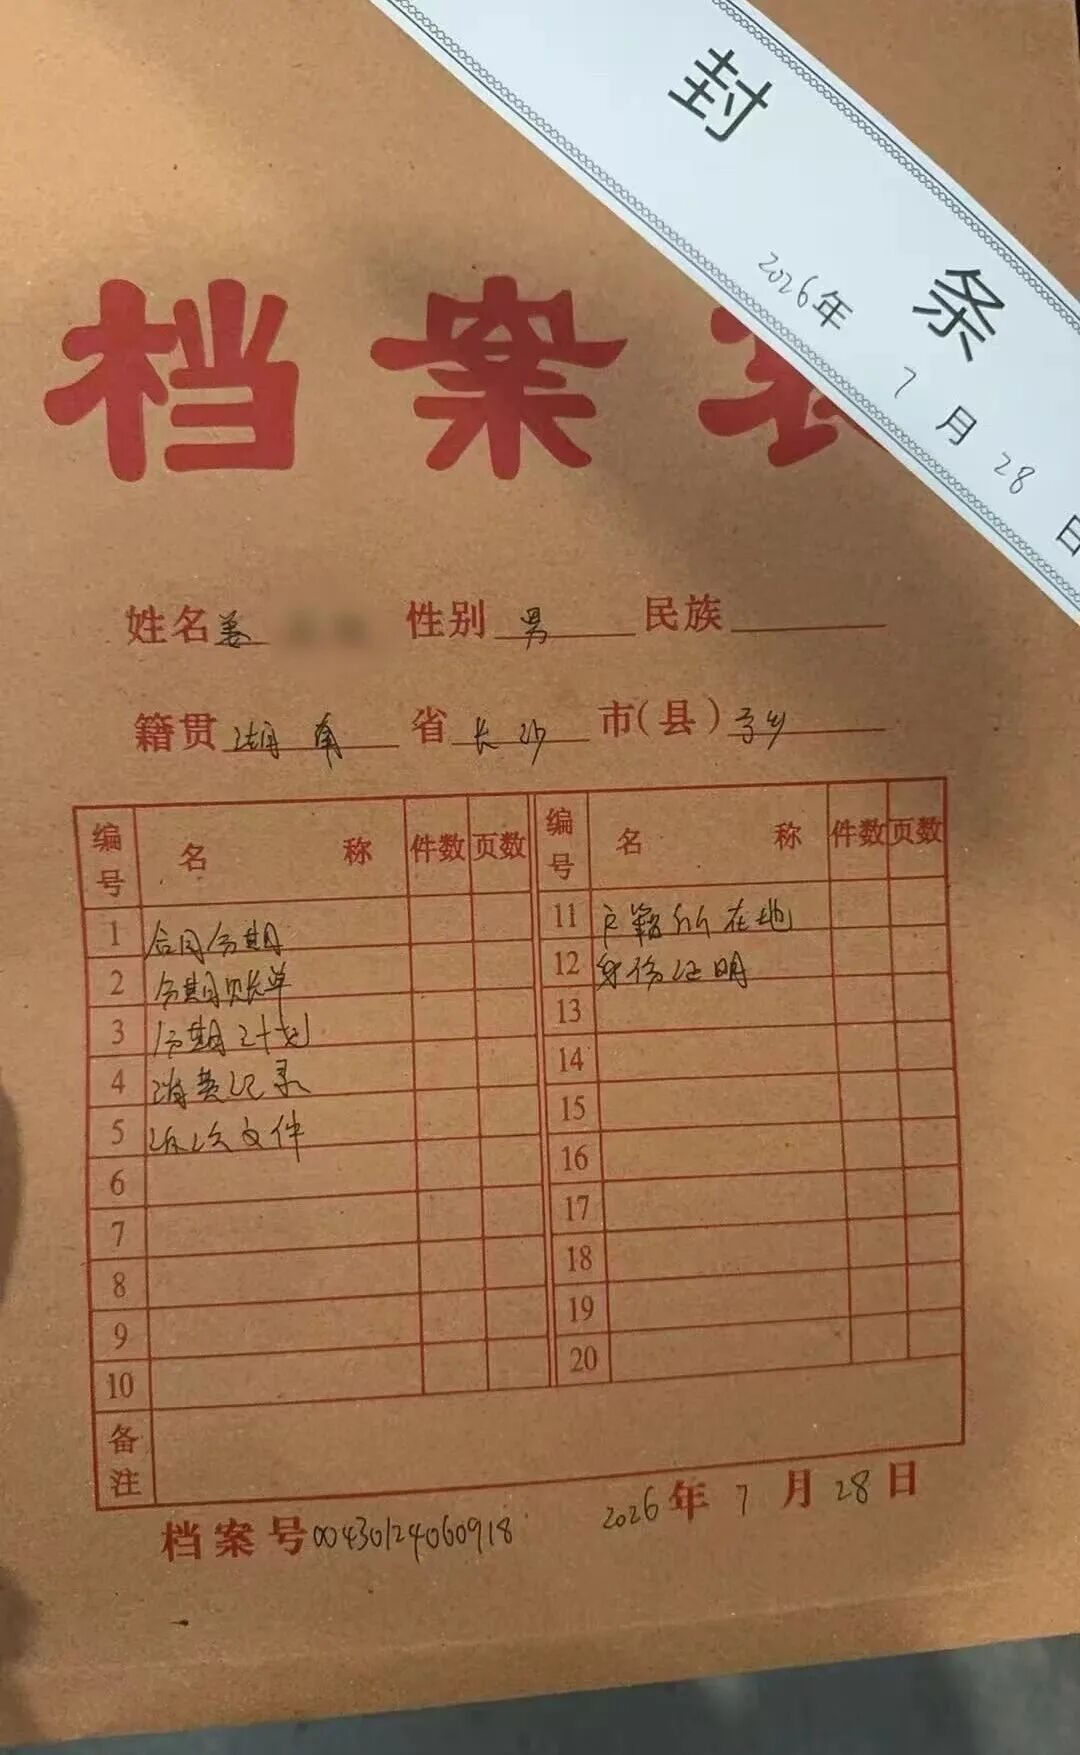 封条
2026年7月28日
档案
姓名 姜 性别 男 民族
籍贯 湖南 省 长沙 市(县) 宁乡
编号 名称 件数 页数 编号 名称 件数 页数
1 合同分期 11 户籍所在地
2 分期账单 12 身份证明
3 分期计划 13
4 消费记录 14
5 诉讼文件 15
6 16
7 17
8 18
9 19
10 20
备注
档案号 00430124060918 2026年7月28日